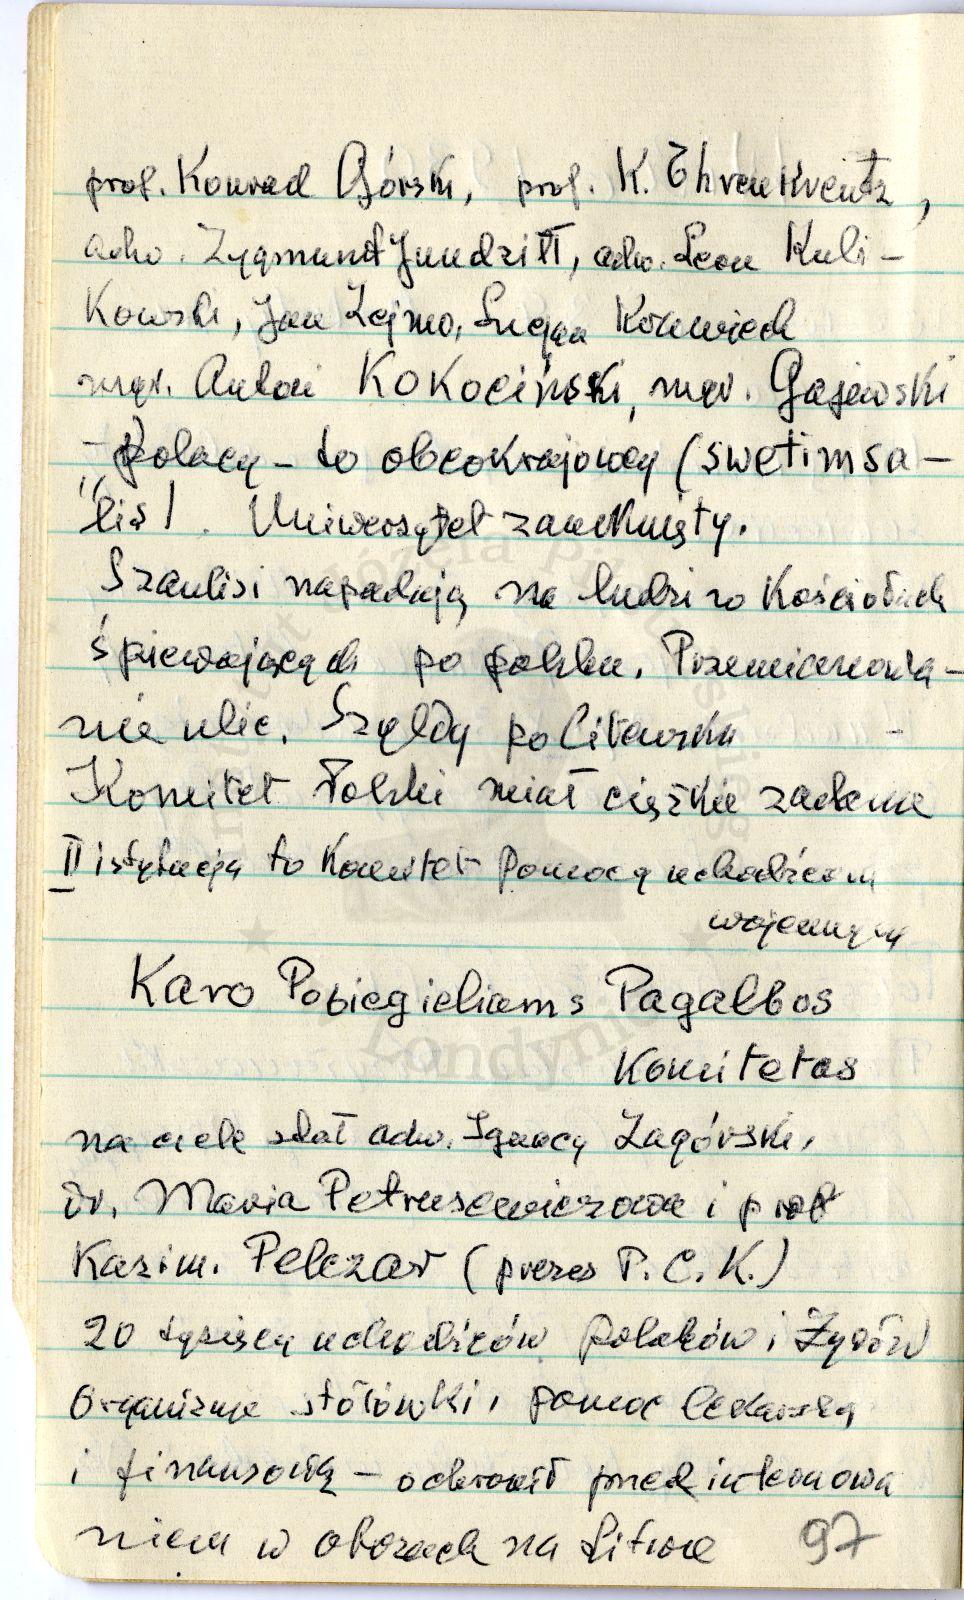 prof. Konrad Górski, prof. K. Ehrenkreutz,
adw. Zygmunt Jundziłł, adw. Leon Kuli-
Kowski, Jan Zejmo, Lucjan
mgr. Antoni KoKociński, mgr. Gajewski
- Polacy - to obcokrajowcy (swetimsa-
lis). Uniwersytet zamknięty.
Szaulisi napadają na ludzi w Kościołach
śpiewających po polsku. Przemianowa-
nie ulic. Szyldy po Litewsku -
Komitet Polski miał ciężkie zadanie
II istytucją to Komitet Pomocy uchodźcom
wojennym
Karo Pobiegieliams Pagalbos
Komitetas
na czele stał adw. Ignacy Zagórski,
dr. Maria Petrusewiczowa i prof
Kazim. Pelczar (prezes P.C.K.)
20 tysięcy uchodźców polaków i Żydów
Organizuje stołówki, pomoc lekarską
i finansową - ochronił przed internowa
niem w obozach na Litwie 97
Londynie